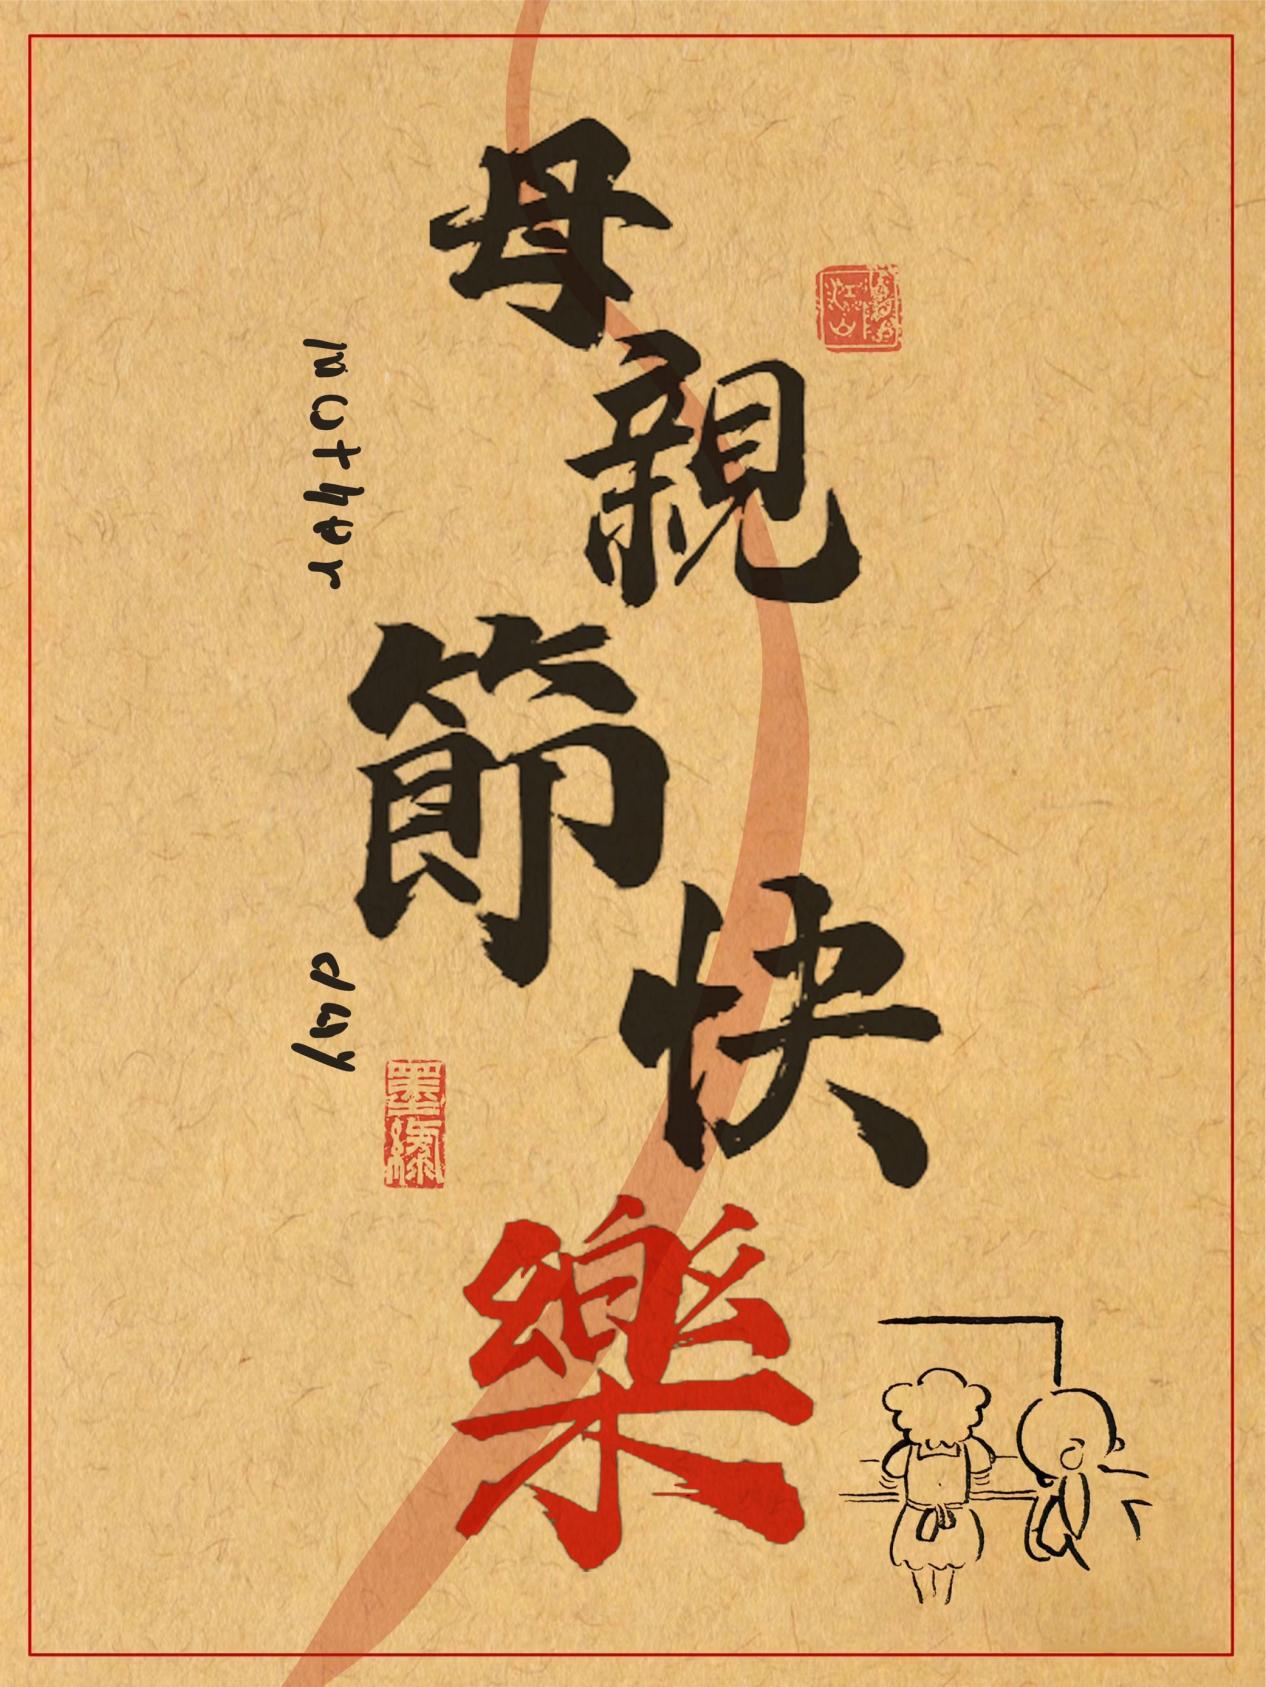 母親節快樂
mother
day
墨緣